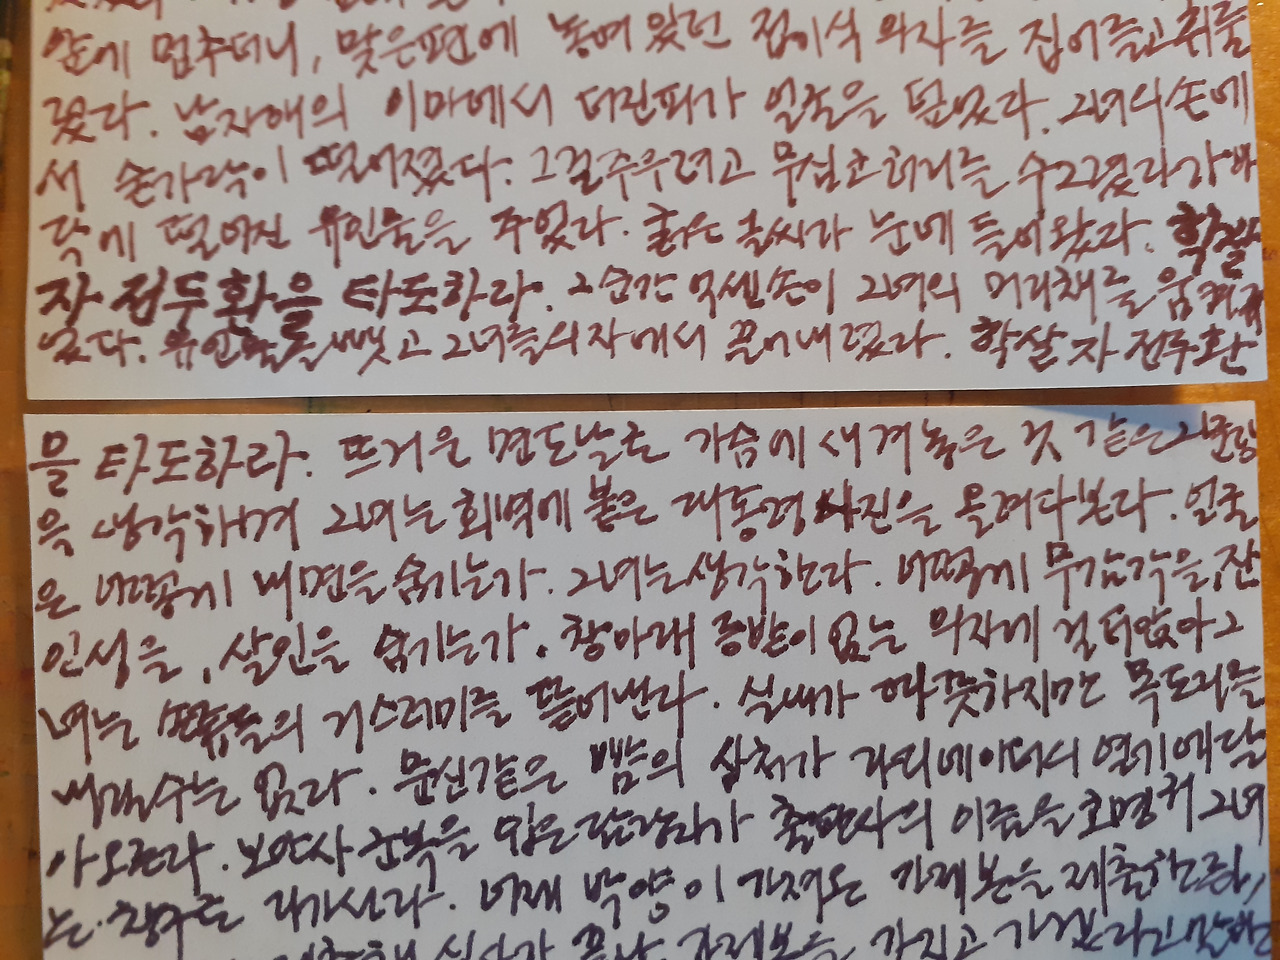 앞에 멈추더니, 맞은편에 놓여 있던 접이식 의자를 집어들고 휘둘
렀다. 남자애의 이마에서 터진 피가 얼굴을 덮었다. 그녀의 손에
서 손가락이 떨어졌다. 그걸 주우려고 무심코 허리를 수그렸다가 바
닥에 떨어진 유인물을 주웠다. 굵은 글씨가 눈에 들어왔다. 학살
자 전두환을 타도하라. 그순간 억센 손이 그녀의 머리채를 움켜쥐
었다. 유인물을 뺏고 그녀를 의자에서 끌어내렸다. 학살자 전두환
을 타도하라. 뜨거운 면도날로 가슴에 새겨놓은 것 같은 그 문장
을 생각하며 그녀는 회벽에 붙은 대통령 사진을 올려다본다. 얼굴
은 어떻게 내면을 숨기는가. 그녀는 생각한다. 어떻게 무감각을, 잔
인성을, 살인을 숨기는가. 창 아래 등받이 없는 의자에 걸터앉아 그
녀는 손톱들의 거스러미를 뜯어낸다. 실내가 따뜻하지만 목도리를
수는 없다. 문신 같은 뺨의 상처가 라디에이터의 열기에 달
아오른다. 보안사 군복을 입은 담당자가 출판사의 이름을 호명하자 그녀
는 창구로 다가선다. 어제 박양이 가져온 가제본을 제출한 뒤,
가제본을 가지고 가겠다고 말하